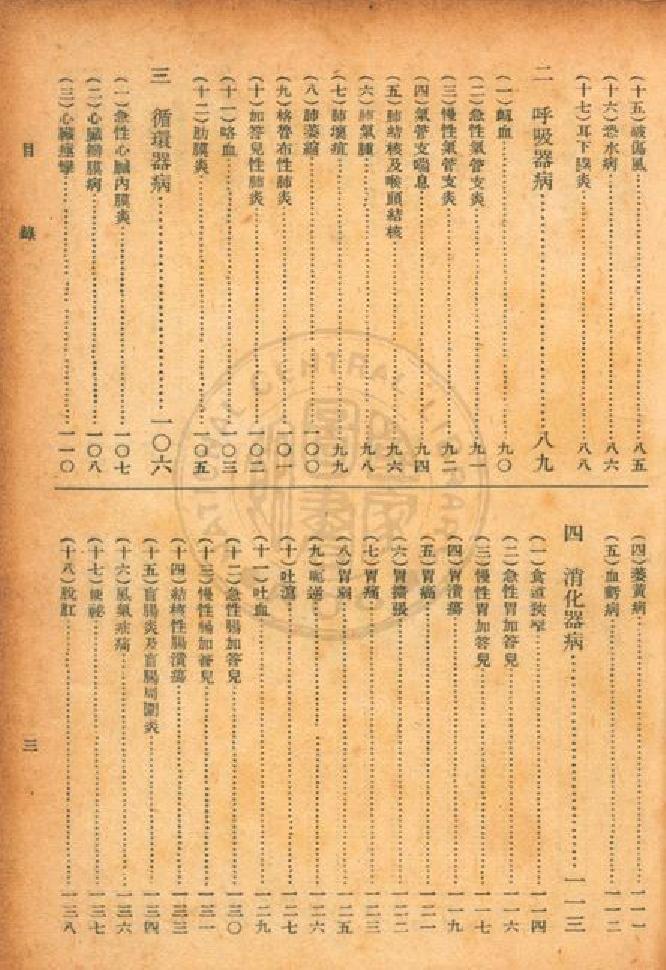 (十五)破傷風……八五
(十六)恐水病……八六
(十七)耳下腺炎……八八
二 呼吸器病……八九
(一)衄血……九〇
(二)急性氣管支炎……九一
(三)慢性氣管支炎……九二
(四)氣管支喘息……九四
(五)肺結核及喉頭結核……九六
(六)肺氣腫……九八
(七)肺壞疽……九九
(八)肺萎縮……一〇〇
(九)格魯布性肺炎……一〇一
(十)加答兒性肺炎……一〇二
(十一)咯血……一〇三
(十二)肋膜炎……一〇五
三 循環器病……一〇六
(一)急性心臟內膜炎……一〇七
(二)心臟瓣膜病……一〇八
(三)心臟痙攣……一一〇
(四)萎黃病……一一一
(五)血虧病……一一二
四 消化器病……一一三
(一)食道狹窄……一一四
(二)急性胃加答兒……一一六
(三)慢性胃加答兒……一一七
(四)胃潰瘍……一一九
(五)胃癌……一二一
(六)胃擴張……一二二
(七)胃痛……一二三
(八)胃弱……一二五
(九)呃逆……一二六
(十)吐瀉……一二七
(十一)吐血……一二九
(十二)急性腸加答兒……一三〇
(十三)慢性腸加答兒……一三一
(十四)結核性腸潰瘍……一三三
(十五)盲腸炎及盲腸周圍炎……一三四
(十六)風氣疝痛……一三六
(十七)便祕……一三七
(十八)脫肛……一三八
目錄
三
NATIONAL CENTRAL LIBRARY